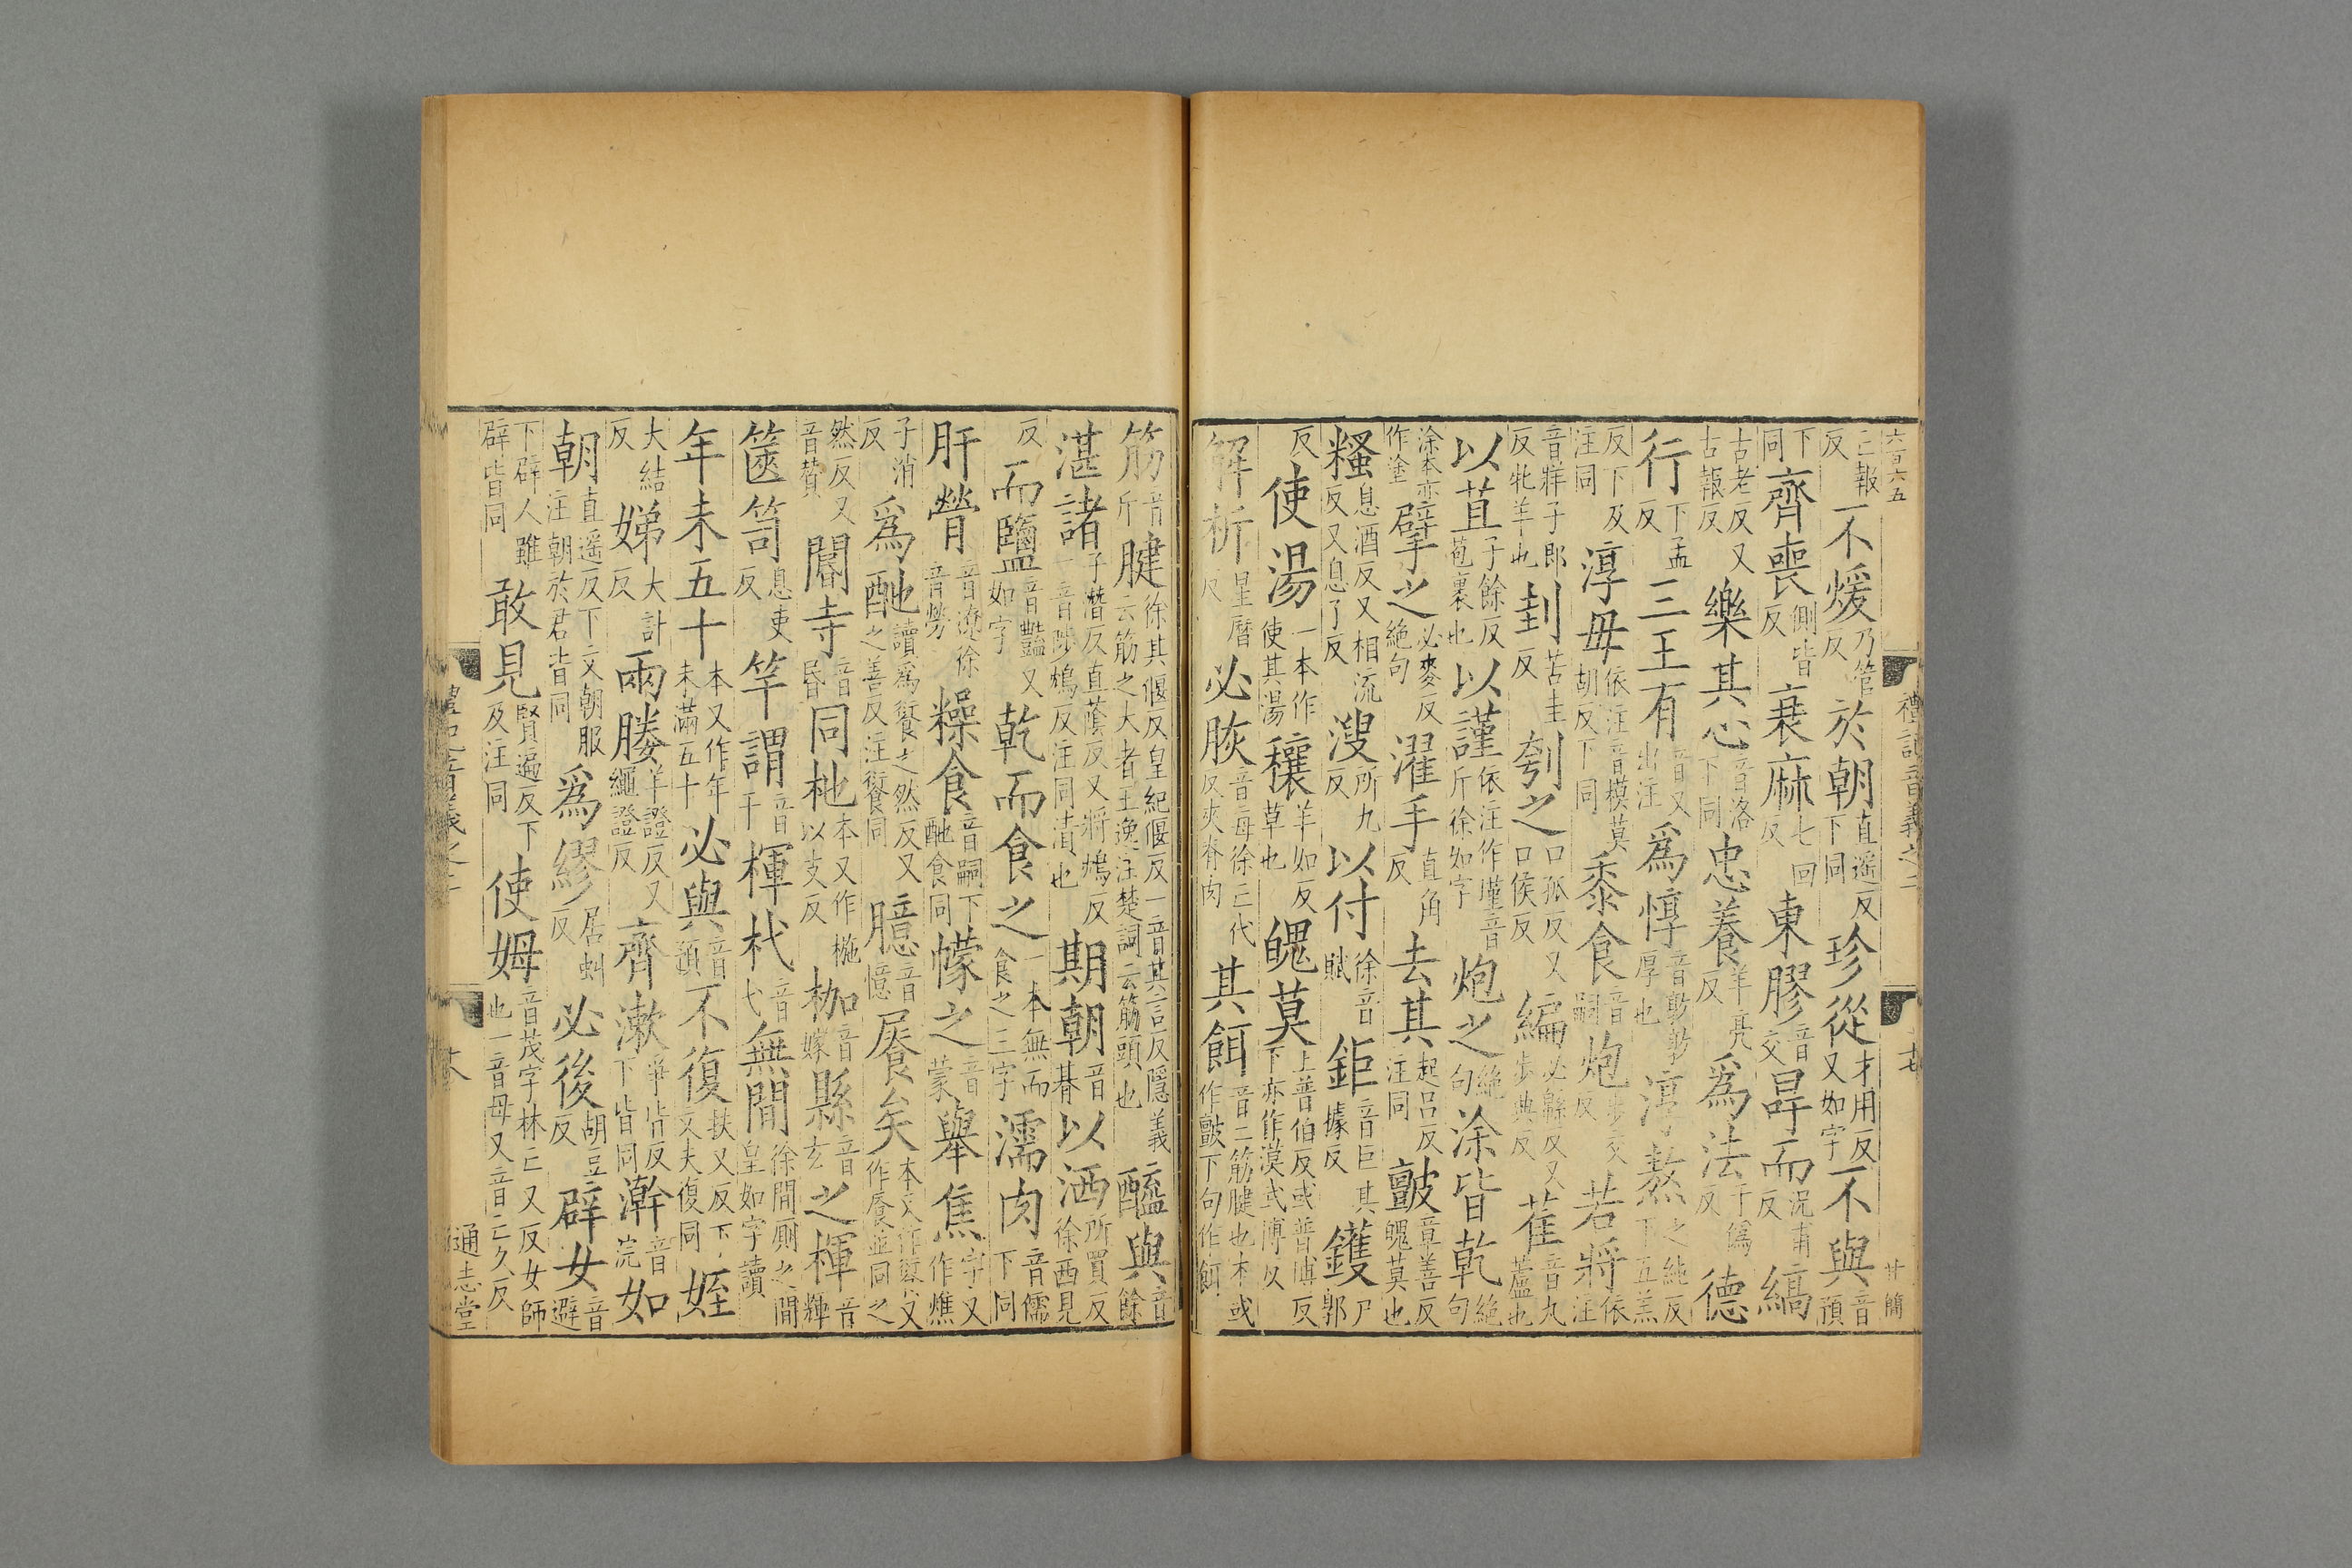 六百六五 禮記音義之二 十七 廿簡
亡報反不煖乃管反於朝直遥反下同珍從才用反又如字不與音預
下同齊喪側皆反衰麻七回反東膠音交冔而況甫反縞
古老反又古報反樂其心音洛下同忠養羊亮反爲法于僞反德
行下孟反三王有音又出注爲惇音敦厚也淳熬之純反下五羔
反下及注同淳毋依注音模莫胡反下同黍食音嗣炮步交反若將依注
音牂子郎反牝羊也刲苦圭反刳之口孤反又口侯反編必緜反又步典反萑音丸蘆也
以苴子餘反苞裹也以謹依注作墐音斤徐如字炮之絶句涂皆乾絶句
涂本亦作塗擘之必麥反絶句濯手直角反去其起呂反注同皽章善反魄莫也
糔息酒反又相流反又息了反溲所九反以付徐音賦鉅音巨其據反鑊尸郭
反使湯一本作使其湯穰羊如反草也魄莫上普伯反或普博反下亦作漠武博反
解析星曆反必脄音每徐亡代反夾脊肉其餌音二筋腱也本或作皽下句作餌
筋音斤腱徐其偃反皇紀偃反一音其言反隱義云筋之大者王逸注楚詞云筋頭也醯與音餘
湛諸子潛反直蔭反又將鴆反一音陟鴆反注同漬也期朝音朞以洒所買反徐西見
反而鹽音豔又如字乾而食之一本無而食之三字濡肉音儒下同
肝膋音遼徐音勞糝食音嗣下酏食同幪之音蒙舉焦字又作燋
子消反爲酏讀爲餰之然反又之善反注餰同臆音憶𩞁矣本又作餰又作𩞁並同之
然反又音贊閽寺音昏同杝本又作椸以支反枷音嫁縣音玄之楎音輝
篋笥息吏反竿謂音干楎杙音弋無間徐間厠之間皇如字讀
年未五十本又作年未滿五十必與音預不復扶又反下文夫復同姪
大結反娣大計反兩媵羊證反又繩證反齊漱爭皆反下皆同澣音浣如
朝直遥反下文朝服注朝於君皆同爲繆居虯反必後胡豆反辟女音避
下辟人雖辟皆同敢見賢遍反下及注同使姆音茂字林亡又反女師也一音母又音亡久反
通志堂